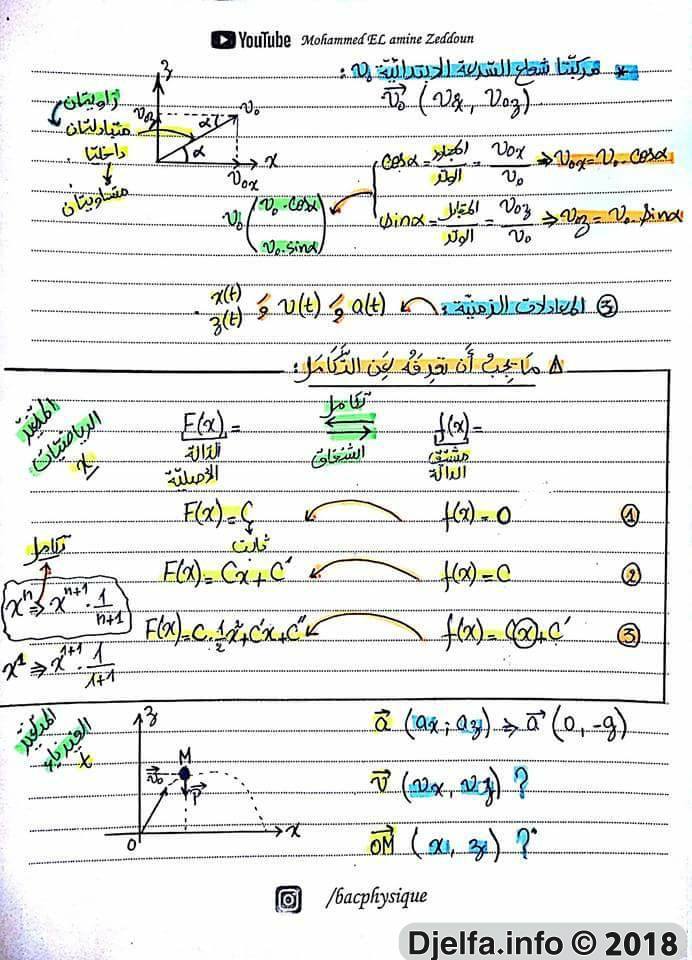 YouTube Mohammed EL amine Zeddoun
* مركبتا شعاع السرعة الابتدائية v₀ :
v₀ (v₀x , v₀z)
z
زاويتان
متبادلتان
داخليا
متساويتان
v₀z
v₀
α
α
x
v₀x
cosα = المجاور/الوتر = v₀x/v₀ ⇒ v₀x = v₀ · cosα
sinα = المقابل/الوتر = v₀z/v₀ ⇒ v₀z = v₀ · sinα
v₀ (v₀ · cosα
v₀ · sinα)
③ المعادلات الزمنية : a(t) و v(t) و x(t)
z(t) .
⚠ ما يجب أن تعرفه عن التكامل :
المتغير
الرياضيات
x
f(x) =
مشتق
الدالة
تكامل
اشتقاق
F(x) =
الدالة
الأصلية
① f(x) = 0 F(x) = C
ثابت
② f(x) = C F(x) = Cx + C'
③ f(x) = Cx + C' F(x) = C · 1/2 x² + C'x + C''
تكامل
xⁿ ⇒ xⁿ⁺¹ · 1/n+1
x¹ ⇒ x¹⁺¹ · 1/1+1
الفيزياء
t
z
M
v₀
P
O
x
a (ax ; az) ⇒ a (0, -g)
v (vx, vz) ?
OM (x, z) ?
/bacphysique
Djelfa.info © 2018